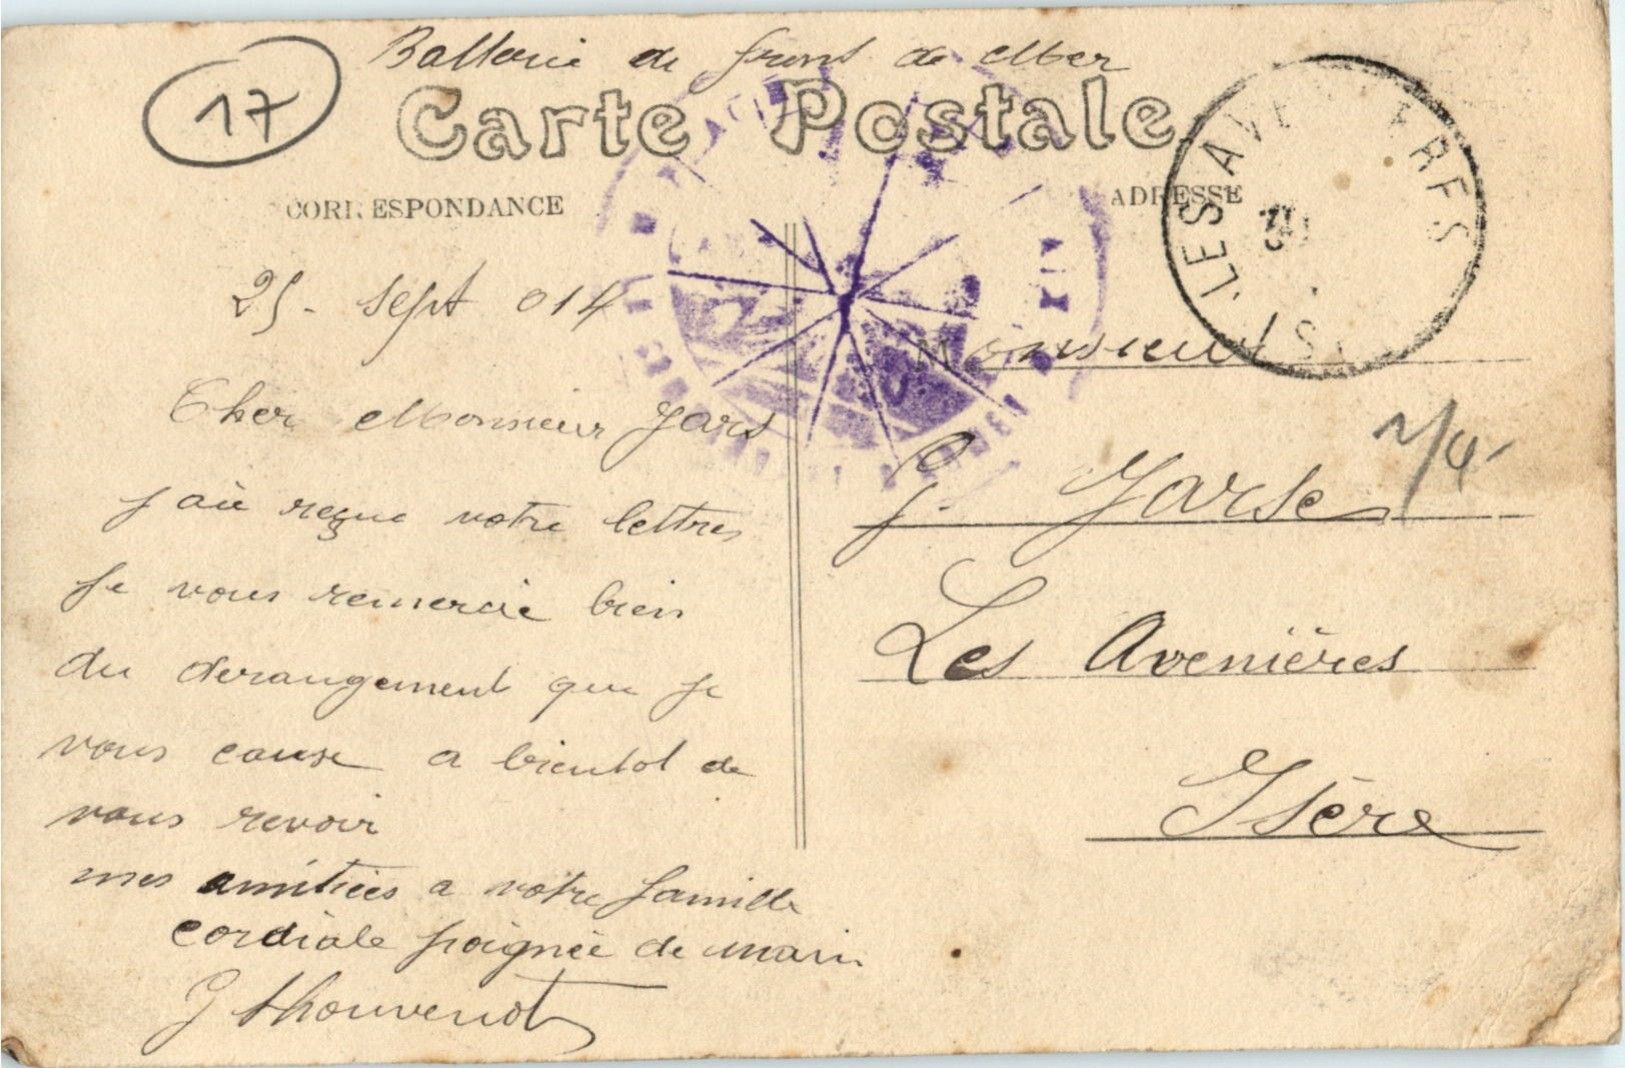 17
Batterie de front de Mer
Carte Postale
CORRESPONDANCE
ADRESSE
25 - sept 014
Cher Monsieur Jars
J aie reçue votre lettres
Je vous remercie bien
du derangement que je
vous cause a bientot de
vous revoir
mes amitiées a votre famille
cordiale poignée de main
J Thouvenot
LES AVE RES
Monsieur
J. Jarse
Les Avenières
Isère